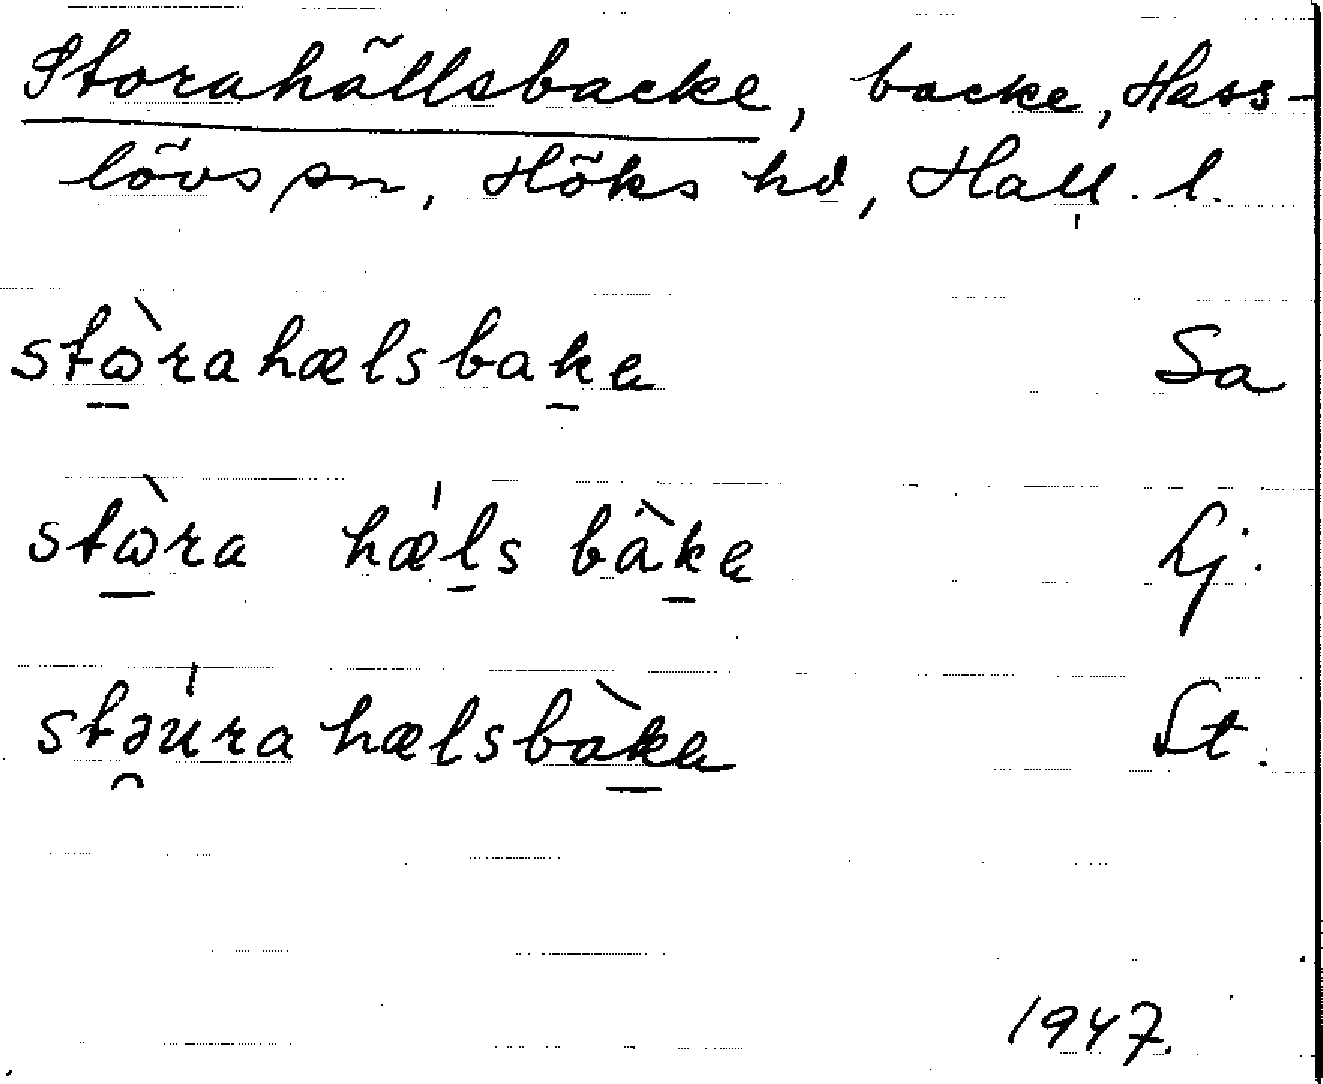 Storahällsbacke, backe, Hass-
lövs sn, Höks hd, Hall. l.
stὼ̱rahælsbak̠e Sa
stὼ̱ra hæ'l̠s bàk̠e Lj.
stə̯úrahælsbàk̠e St.
1947.